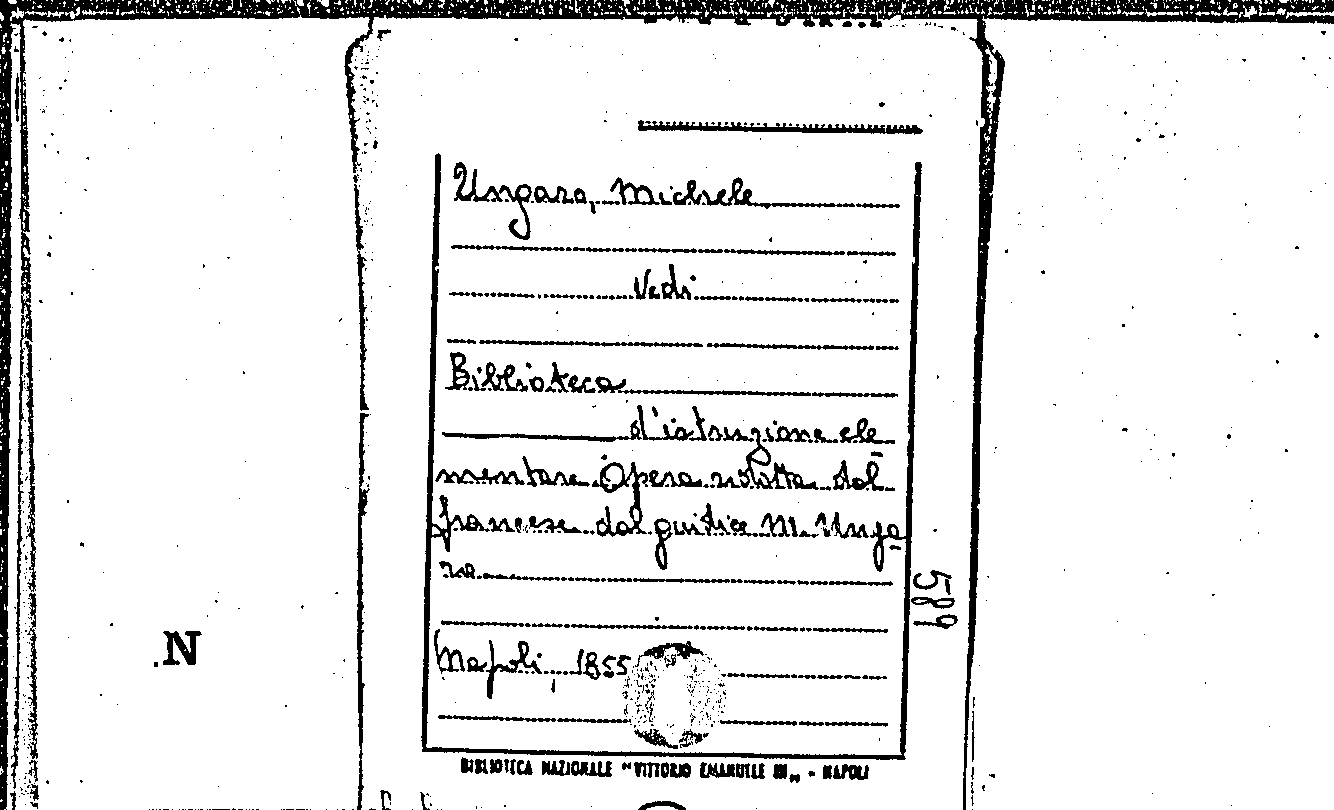 Ungaro, Michele
Vedi
Biblioteca
d'istruzione ele
mentare. Opera ridotta dal
francese dal giudice M. Unga
ro
Napoli, 1855
589
N
BIBLIOTECA NAZIONALE "VITTORIO EMANUELE III" - NAPOLI